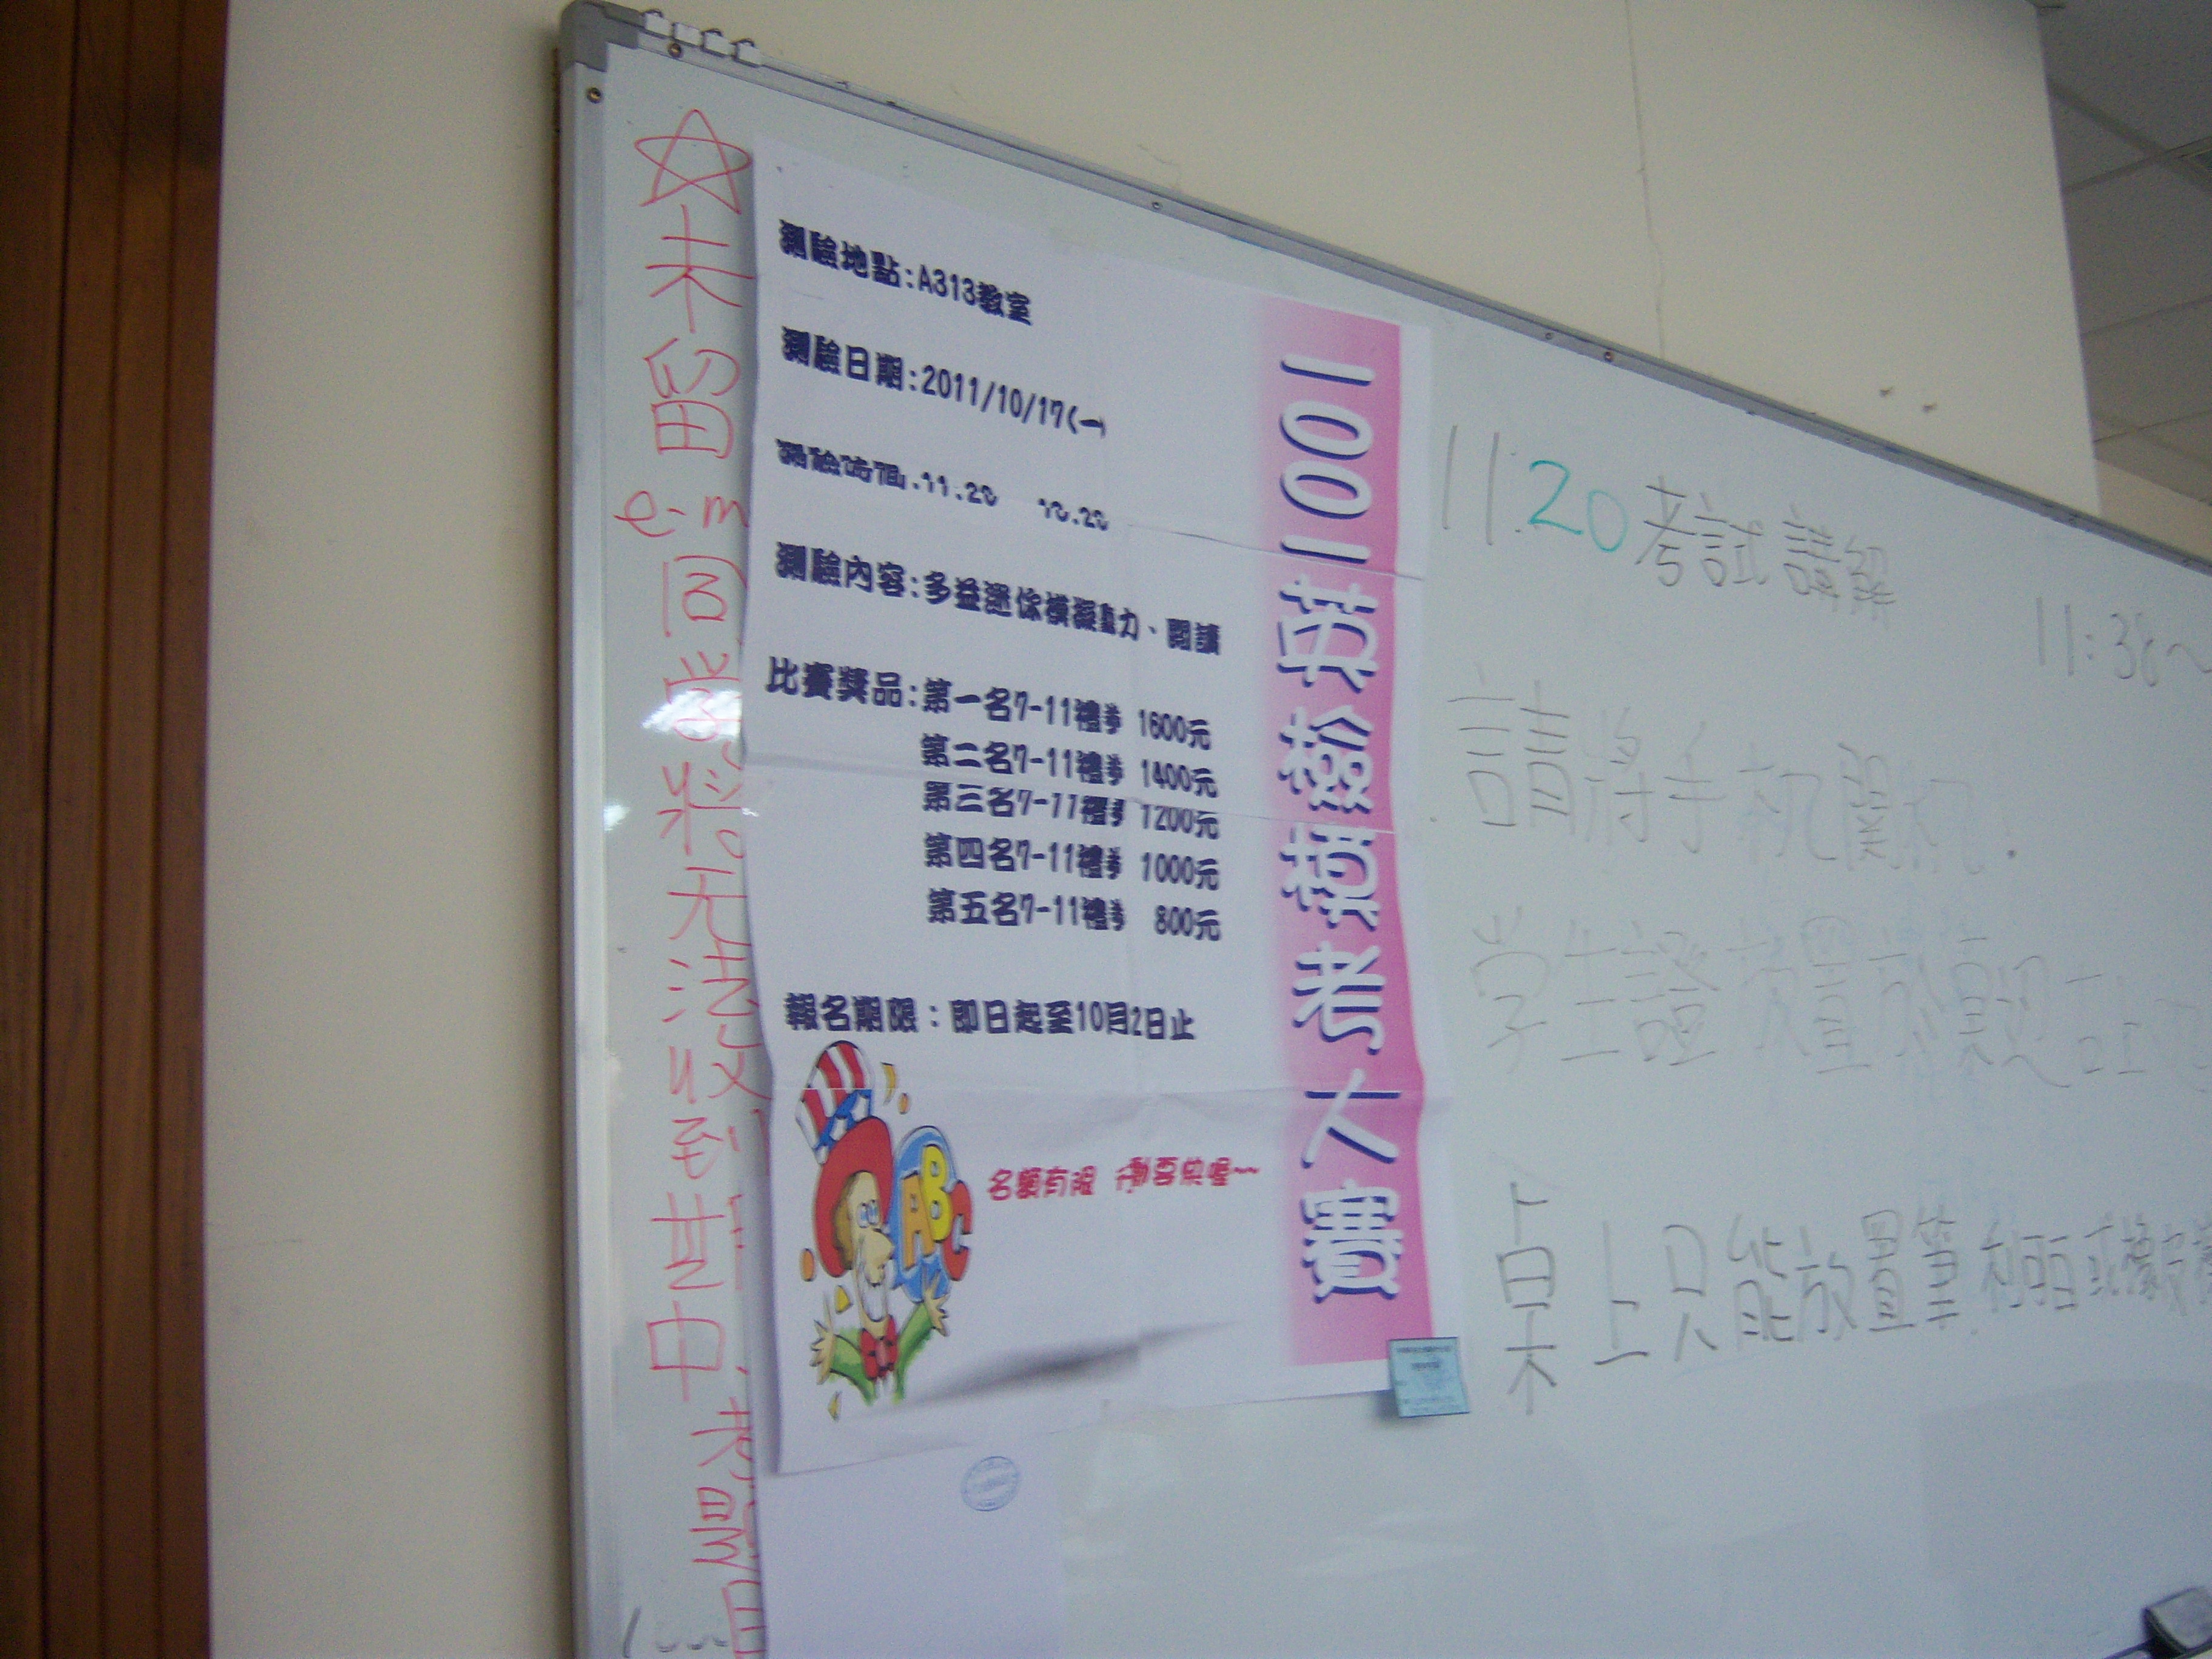 ☆未留e-m同學將无法收到
測驗地點:A313教室
測驗日期:2011/10/17(一)
測驗時間:11:20
測驗內容:多益迷你模擬聽力、閱讀
比賽獎品:第一名7-11禮券 1600元
第二名7-11禮券 1400元
第三名7-11禮券 1200元
第四名7-11禮券 1000元
第五名7-11禮券 800元
報名期限:即日起至10月2日止
ABC
名額有限 行動要快喔~~
1001英檢模考大賽
11:20考試講解
11:38~
請將手機關機.
學生證放置
桌上只能放置筆